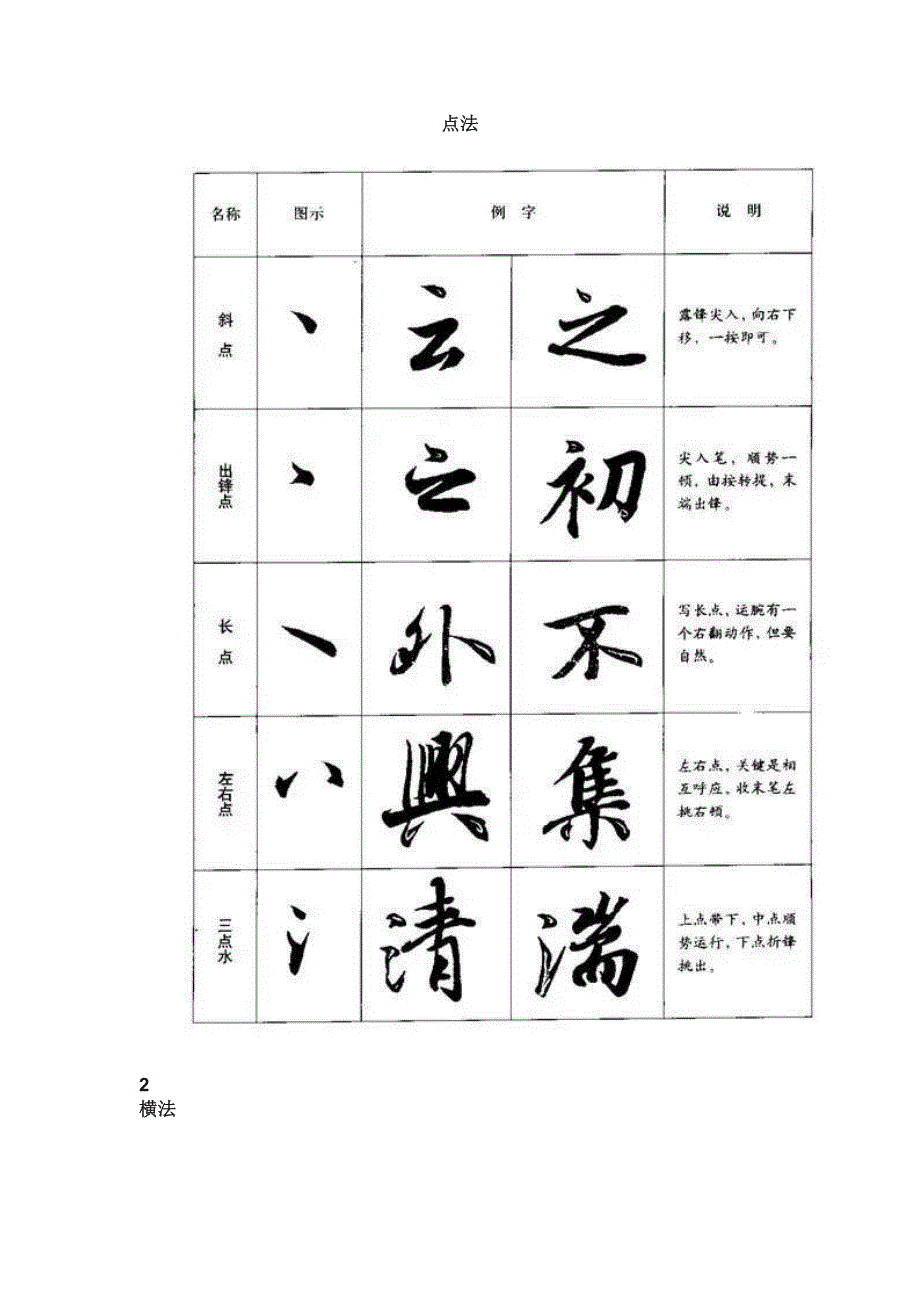 点法
名称 图示 例 字 说 明
斜
点
云 之
露锋尖入，向右下
移，一按即可。
出
锋
点
初
尖入笔，顺势一
顿，由按转提，末
端出锋。
长
点
外 不
写长点，运腕有一
个右翻动作，但要
自然。
左
右
点
興 集
左右点，关键是相
互呼应、收末笔左
挑右顿。
三
点
水
清 湍
上点带下，中点顺
势运行，下点折锋
挑出。
2
横法